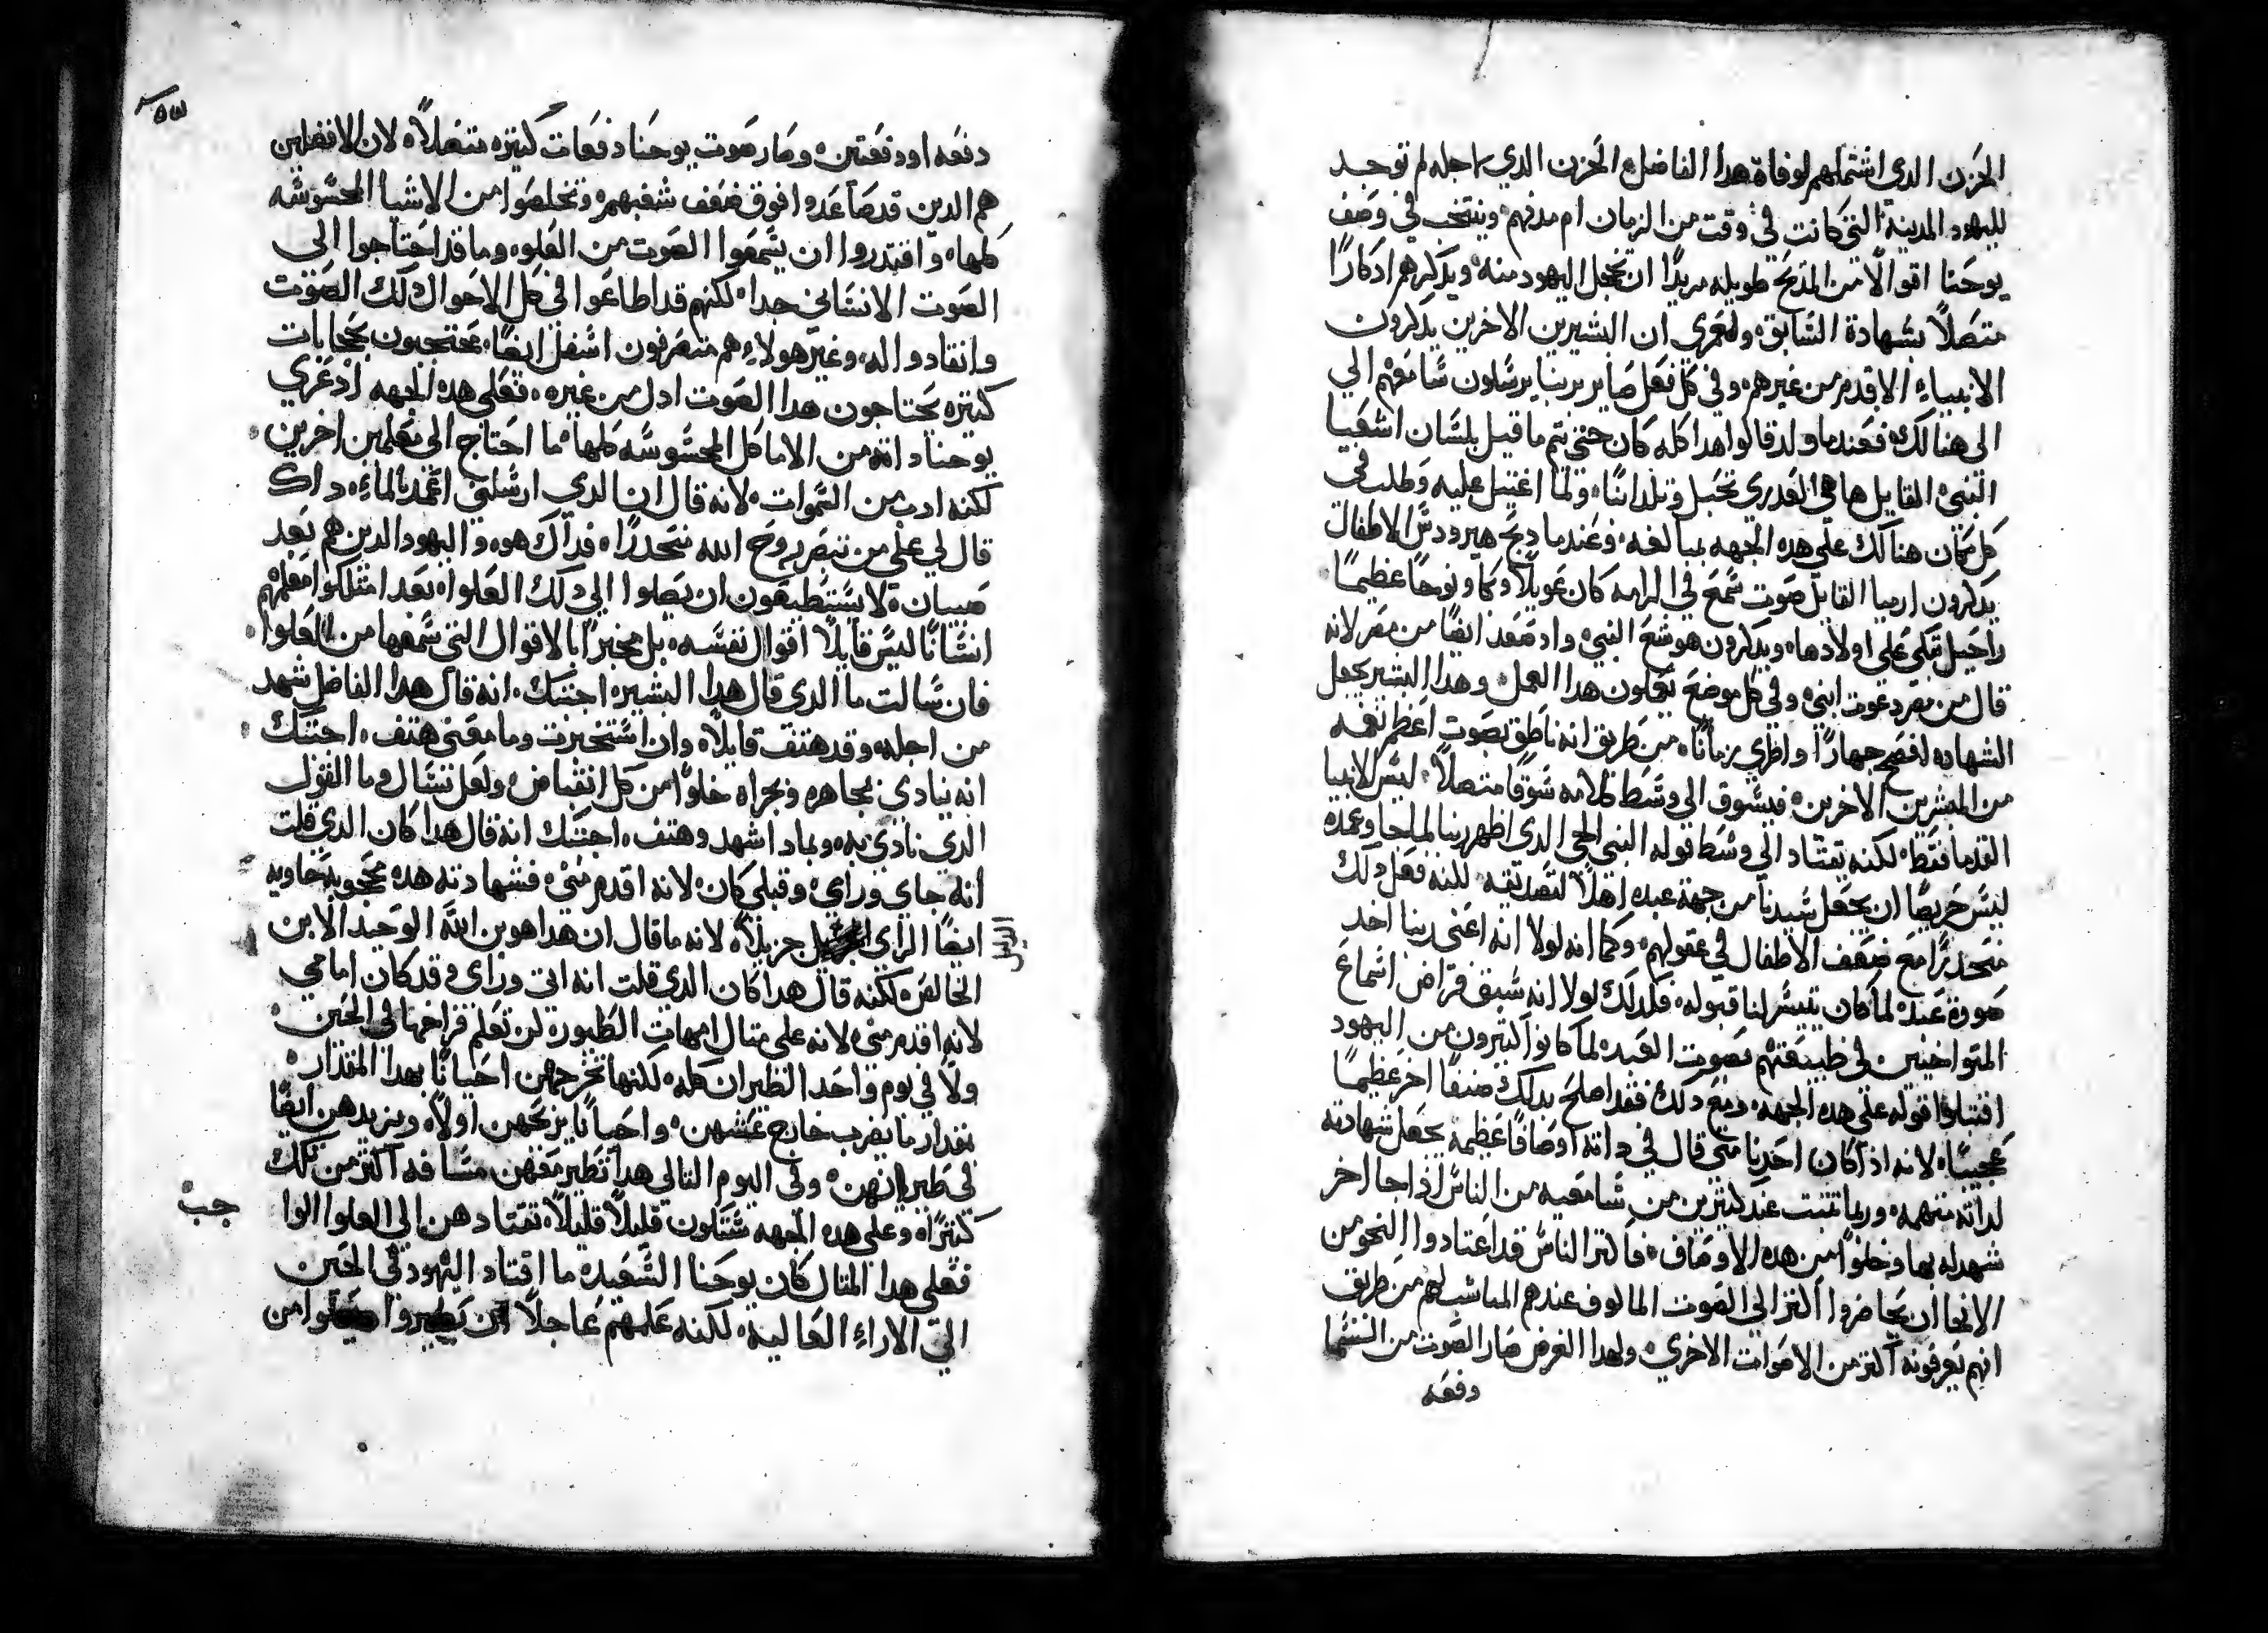 الحزن الدي اشتملهم لوفاة هدا الفاضل الحزن الدي لاجله لم توجد
لليهود المدينة التي كانت في وقت من الزمان ام مدنهم وينتخب في وصف
يوحنا اقوالًا من المديح طويله مريدًا ان يخجل اليهود منه ويدكرهم ادكارًا
متصلًا بشهادة السابق ولعمري ان البشيرين الاخرين يدكرون
الانبياء الاقدم من غيرهم وفي كل فعل صاير بربنا يرسلون سامعهم الي
الي هنالك فعندما ولد قالوا هدا كله كان حتي يتم ما قيل بلسان اشعيا
النبي القايل ها هي العدري تحبل وتلد ابنًا ولما اغتيل عليه وطلب في
كل مكان هنالك علي هده الجهه بمبالغه وعندما دبح هيرودس الاطفال
يدكرون ارميا القايل صوت سمع في الرامه كان عويلًا وبكا ونوحًا عظيمًا
راحيل تبكي علي اولادها ويدكرون هوشع النبي واد صعد ايضًا من مصر لانه
قال من مصر دعوت ابني وفي كل موضع يعملون هدا العمل وهدا البشير يجعل
الشهاده افصح جهارًا واطري زمانًا من طريق انه ناطق بصوت اعظم نغمه
من المبشرين الاخرين فيسوق الي وسط كلامه شوقًا متصلًا ليس الانبيا
القدما فقط لكنه يقتاد الي وسط قوله النبي الحي الدي اظهر ربنا لما جا وعمده
ليس حريصًا ان يجعل سيدنا من جهة عبده اهلًا لتصديقه لكنه فعل دلك
متحدرًا مع ضعف الاطفال في عقولهم وكما انه لولا انه اعني ربنا اخد
صورة عبد لما كان تيسر لنا قبوله فكدلك لولا انه سبق فراض اسماع
المتواخيين في طبيعتهم بصوت العبد لما كانوا اكثرون من اليهود
اقتبلوا قوله علي هده الجهه ومع دلك فقد اصلح بدلك صنفًا اخر عظيمًا
عجيبًا لانه ادا كان احدنا متي قال في داته اوصافًا عظيمة يجعل شهادته
لداته متهمه وربما تتبت عند كثيرين من سامعيه من الناس ادا جا اخر
شهد له بها وخلوًا من هده الاوصاف فاكثر الناس قد اعتادوا النحو من
الانحا ان يحاضروا اكثر الي الصوت المالوف عندهم المناسب لهم من طريق
انهم يعرفونه اكثر من الاصوات الاخري ولهدا الغرض صار الصوت من السما
دفعه
دفعه او دفعتين وصار صوت يوحنا دفعات كتيره متصلًا لان الافضلين
هم الدين قد صاعدوا فوق ضعف شعبهم وتخلصوا من الاشيا المحسوسه
كلها واقتدروا ان يسمعوا الصوت من العلو وما قد احتاجوا الي
الصوت الانساني جدا لكنهم قد اطاعوا في كل الاحوال دلك الصوت
وانقادوا اله وغير هولاء هم متصرفون اسفل ايضًا محتجبون بحجابات
كتيره يحتاجون هدا الصوت ادل من غيره فعلي هده الجهه اد عري
يوحنا داته من الاماكل المحسوسه كلها ما احتاج الي معلمين اخرين
لكنه ادب من السموات لانه قال ان الدي ارسلني اعمد بالماء داك
قال لي علي من تبصر روح الله متحدرًا فداك هو واليهود الدين هم بعد
صبيان لا يستطيعون ان يصلوا الي دلك العلو اد بعد امتلكوا معلمهم
انسانًا ليس قايلًا اقوال نفسه بل مخبرًا بالاقوال التي سمعها من العلو
فان سالت ما الدي قال هدا البشير اجبتك انه قال هدا الفاضل شهد
من اجله وقد هتف قايلًا وان استخبرت وما معني هتف اجبتك
انه ينادي بمجاهره وبجراه خلوًا من كل انقباض ولعل تسال وما القول
الدي نادي به وبمادا شهد وهتف اجبتك انه قال هدا كان الدي قلت
انه جاي وراي وقبلي كان لانه اقدم مني فشهادته هده محجوبه حاويه
ايضًا الراي جزيلًا لانه ما قال ان هدا هو بن الله الوحيد الابن
الخالص لكنه قال هدا كان الدي قلت انه اتي وراي وقد كان امامي
لانه اقدم مني لانه علي متال امهات الطيور لن تعلم فراخها في الحين
ولا في يوم واحد الطيران كله لكنها تخرجهن احيانًا بهدا المقدار
بقدار ما يقرب خارج عشهن واحيانًا يزيحهن اولًا ويزيدهن ايضًا
في طيرانهن وفي اليوم التالي هدا تطير معهن مسافه اكتر من تلك
كثيرًا وعلي هده الجهه ستكون قليلًا قليلًا تقتادهن الي العلو الوا
جب
فعلي هدا المتال كان يوحنا السعيد ما اقتاد اليهود في الحين
الي الاراء العالية لكنه علمهم عاجلًا ان يطيروا من